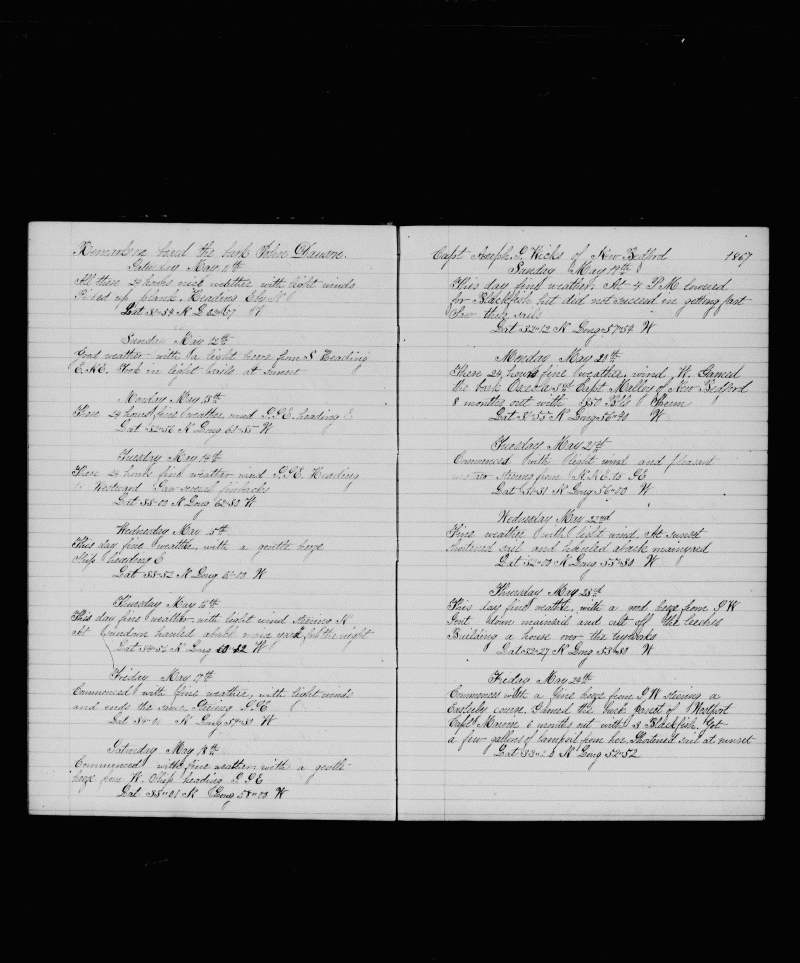 Remarks on board the bark John Dawson.
Saturday May 11th
All these 24 hours nice weather with light winds
Picked up plank. Heading E by N
Lat 31-54 N L 62-67 W
Sunday May 12th
Good weather with a light breeze from S Heading
E.N.E. Took in light sails at sunset
Monday May 13th
These 24 hours fine weather wind S.S.E. heading E
Lat 32-56 N Long 61-35 W
Tuesday May 14th
These 24 hours fine weather wind S.S.E. Heading
to Westward Saw several finbacks
Lat 33-00 N Long 62-30 W
Wednesday May 15th
This day fine weather with a gentle breeze
Ship heading E
Lat 33-52 N Long 61-00 W
Thursday May 16th
This day fine weather with light wind steering N
At sundown hauled aback main yard for the night
Lat 34-56 N Long 60-32 W
Friday May 17th
Commenced with fine weather, with light winds
and ends the same Steering S.S.E
Lat 34-01 N Long 59-30 W
Saturday May 18th
Commenced with fine weather with a gentle
breeze from W. Ship heading S.S.E
Lat 33-01 N Long 58-00 W
Capt Joseph G. Hicks of New Bedford 1867
Sunday May 19th
This day fine weather. At 4 P.M. lowered
for Blackfish but did not succeed in getting fast
Saw three sails
Lat 32-12 N Long 57-54 W
Monday May 20th
These 24 hours fine weather, wind W. Gamed
the bark Osceola 3rd Capt Malloy of New Bedford
8 months out with 350 Bls Sperm
Lat 31-55 N Long 56-40 W
Tuesday May 21st
Commenced with light wind and pleasant
weather steering from N.N.E. to SE
Lat 31-31 N Long 56-00 W
Wednesday May 22nd
Fine weather with light wind. At sunset
shortened sail and hauled aback mainyard
Lat 32-00 N Long 55-30 W
Thursday May 23rd
This day fine weather, with a good breeze from SW
Sent down mainsail and cut off the leeches
Building a house over the tryworks
Lat 32-27 N Long 53-30 W
Friday May 24th
Commences with a fine breeze from SW steering a
Easterly course. Gamed the bark of Westport
Capt Mannn 6 months out with 3 Blackfish. Got
a few gallons of lampoil from her. Shortened sail at sunset
Lat 33-26 N Long 52-52